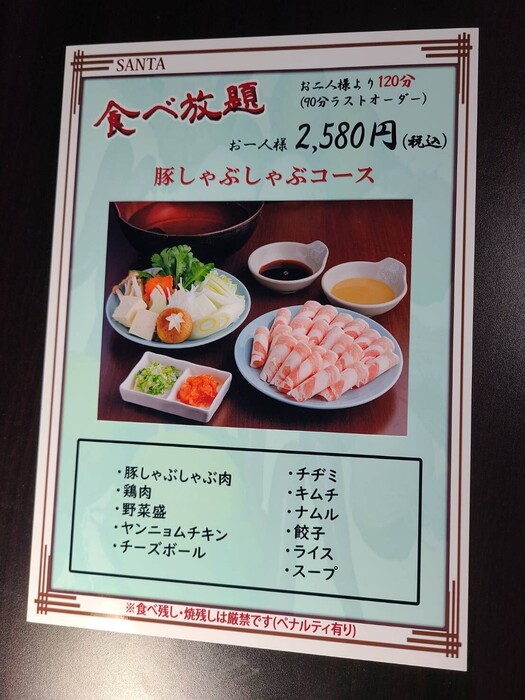 SANTA
食べ放題
お二人様より120分
(90分ラストオーダー)
お一人様 2,580円(税込)
豚しゃぶしゃぶコース
・豚しゃぶしゃぶ肉
・鶏肉
・野菜盛
・ヤンニョムチキン
・チーズボール
・チヂミ
・キムチ
・ナムル
・餃子
・ライス
・スープ
※食べ残し・焼残しは厳禁です(ペナルティ有り)